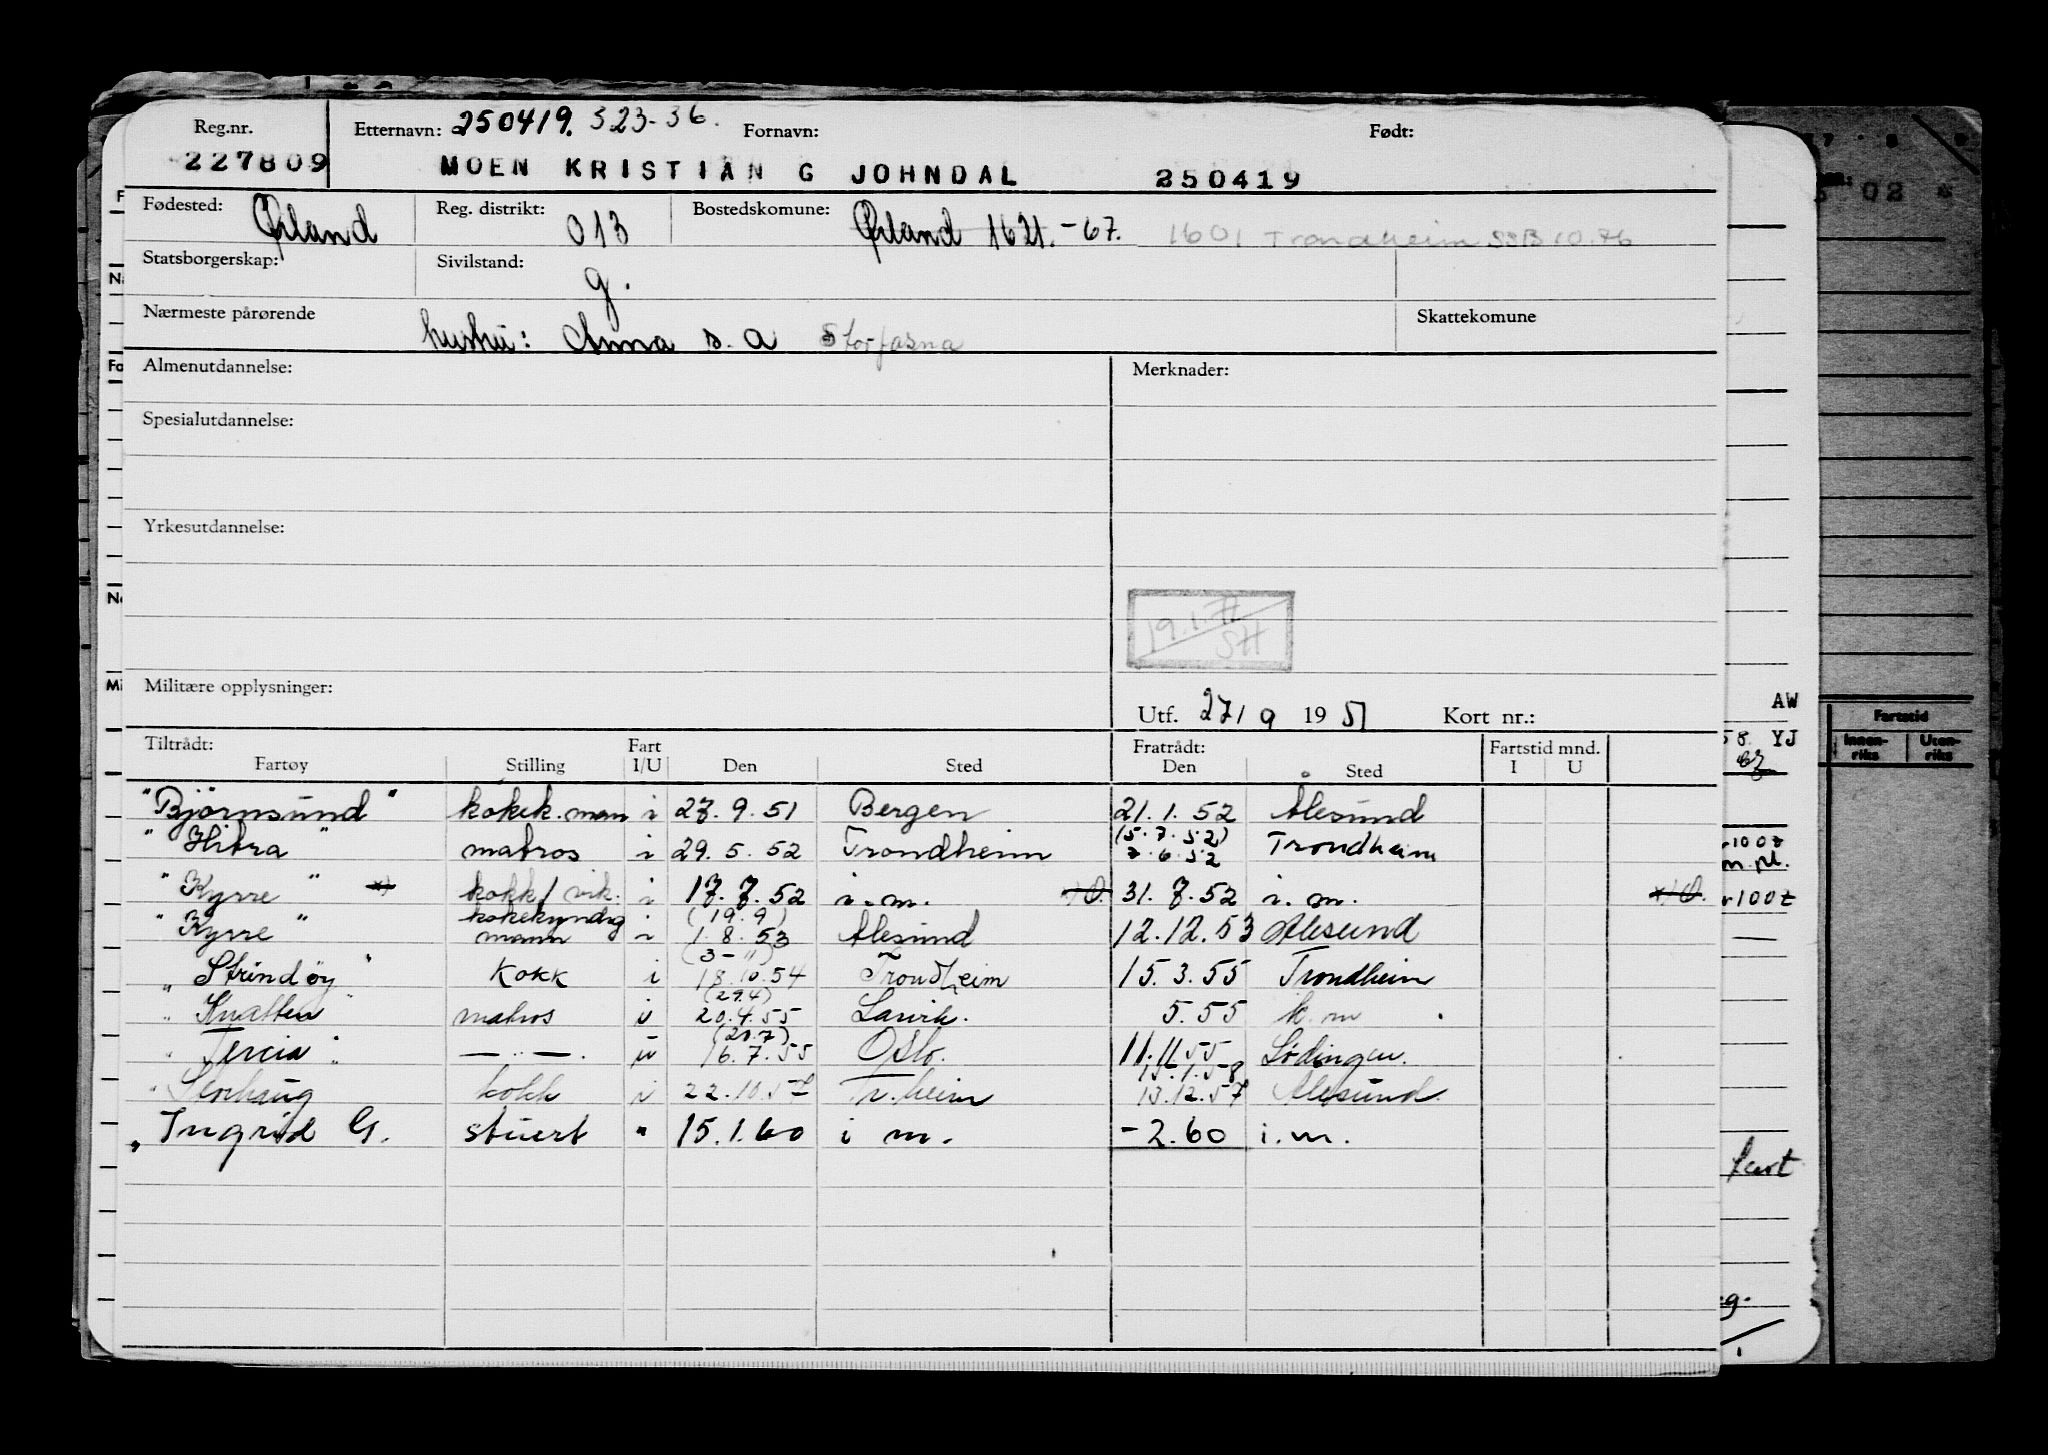 Reg.nr. Etternavn: 250419. 323-36. Fornavn: Født:
227809 MOEN KRISTIAN G JOHNDAL 250419
Fødested: Ørland Reg. distrikt: 013 Bostedskomune: Ørland 1621.-67. 1601 Trondheim SSB 10.76
Statsborgerskap: Sivilstand: g.
Nærmeste pårørende hustru: Anna s.a Storfosna Skattekomune
Almenutdannelse: Merknader:
Spesialutdannelse:
Yrkesutdannelse:
19.1.77
SH
Militære opplysninger:
Utf. 27/9 1951 Kort nr.:
Tiltrådt: Fart Fratrådt: Fartstid mnd.
Fartøy Stilling I/U Den Sted Den Sted I U
"Björnsund" kokek.man i 27.9.51 Bergen 21.1.52 Ålesund
"Hitra" matros i 29.5.52 Trondheim (5.7.52) 7.6.52 Trondheim
"Kyrre" x) kokk/vik. i 17.7.52 i.m. 31.7.52 i.m.
"Kyrre" kokekyndig mann i (19.9) 1.8.53 Ålesund 12.12.53 Ålesund
"Strindöy" kokk i (3-11) 18.10.54 Trondheim 15.3.55 Trondheim
"Knatten" matros u (29.4) 20.4.55 Larvik. 5.55 k.m
"Tercia" — " —. u (20.7) 16.7.55 Oslo. 11.11.55 Lödingen.
"Storhaug kokk i 22.10.57 Tr.heim 15.1.58 13.12.57 Ålesund.
"Ingrid G. stuert " 15.1.60 i m. -2.60 i.m.
AW
58. YJ
Fartstid
Innen-riks Uten-riks
02
m.pl.
fart